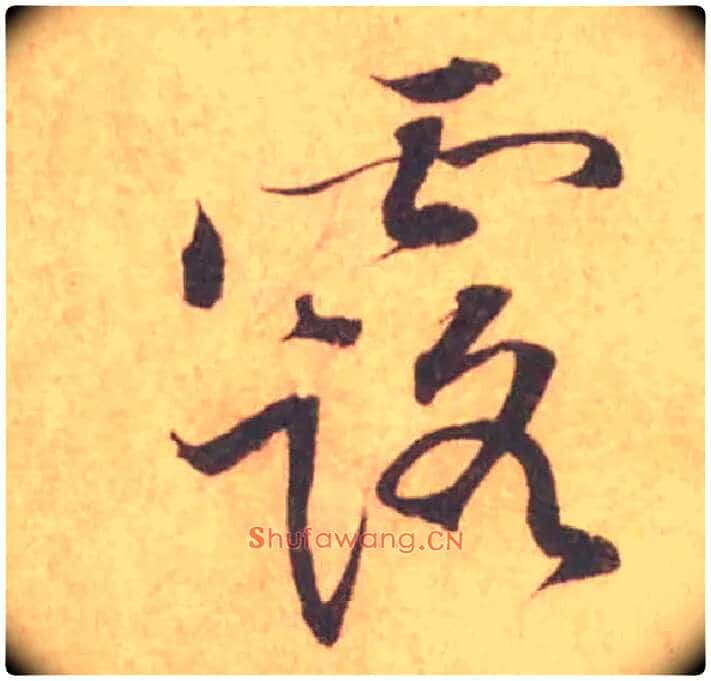 露
Shufawang.CN